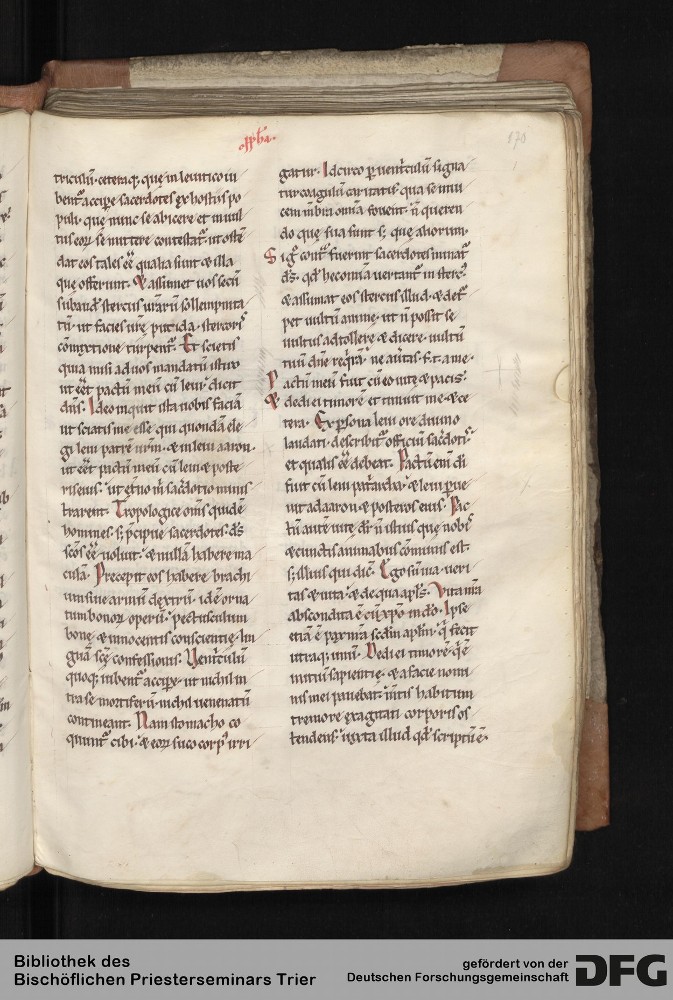 170
triculū. ceteraq; quę in leuitico iu
bent̄ accipe sacerdotes ex hostiis po
puli. quę nunc se abicere et in uul
tus eoꝝ se mittere contestat̄. ut osten̄
dat eos tales eē qualia sunt & illa
quę offerunt. & assumet uos secū
subaud̄ stercus uraꝝ sollempnita
tū. ut facies urę putida stercoris
cōmixtione turpent̄. Et scietis
quia misi ad uos mandatū istud
ut eēt pactū meū cū leui. dicit
dn̄s. Ideo inquit ista uobis faciā
ut sciatis me esse. qui quondā ele
gi leui patrē urm̄. & in leui aaron.
ut eēt pactū meū cū leui & poste
ris eius. ut et̄no m̄ sacdotio minis
trarent. Tropologice om̄s quidē
homines. s; p̄cipue sacerdotes. ds̄
scōs eē uoluit. & nullā habere ma
culā. Precepit eos habere brachi
um siue armū dextrū. id ē orna
tum bonoꝝ operū. pectusculum
bonę & innocentis conscientię. lin
guā scē confessionis. Uent̄culū
quoq; iubent̄ accipe. ut nichil in
tra se mortiferū. nichil uenenatū
contineant. Nam stomacho co
quunt̄ cibi. & eoꝝ suco corp̄ irri
gatur. Idcirco ꝑ uent̄culū signa
tur coagulū caritatis. qua se inui
cem mb̄ra omia fouent. n̄ queren
do quę sua sunt s; quę aliorum.
Sig̊ cont̄ fuerint sacerdotes minat̄
ds̄. qd̄ hec omia uertant̄ in sterc̄
& assumat eos stercus illud. & det̄
pet uultū animę. ut n̄ possit se
uultus adtollere & dicere. uultū
tuū dn̄e reqrā. ne auitas. f. t. a me.
Pactū meū fuit cū eo uitę & pacis.
& dedi ei timorē et timuit me. & ce
tera. Ex persona leui ore diuino
laudati. describit̄ officiū sacdotis
et qualis eē debeat. Pactū eni di
fuit cū leui patriarcha. & leui ꝑue
nit ad aaron & posteros eius. Pac
tū autē uitę dī n̄ istius quę nobis
& cunctis animabus cōmunis est.
s; illius qui dic̄. Ego sū uia. ueri
tas & uita. & de qua apls̄. Vita nrā
abscondita ē cū xp̄o in do̊. Ipse
etiā ē pax nrā scdm̄ aplm̄. q̄ fecit
utraq; unū. Dedi ei timorē. q̄ ē
initiū sapientię. & a facie nomi
nis mei pauebat. int̄is habitum
tremore exagitati corporis os
tendens. iuxta illud qd̄ scriptū ē.
Bibliothek des
Bischöflichen Priesterseminars Trier
gefördert von der
Deutschen Forschungsgemeinschaft
DFG